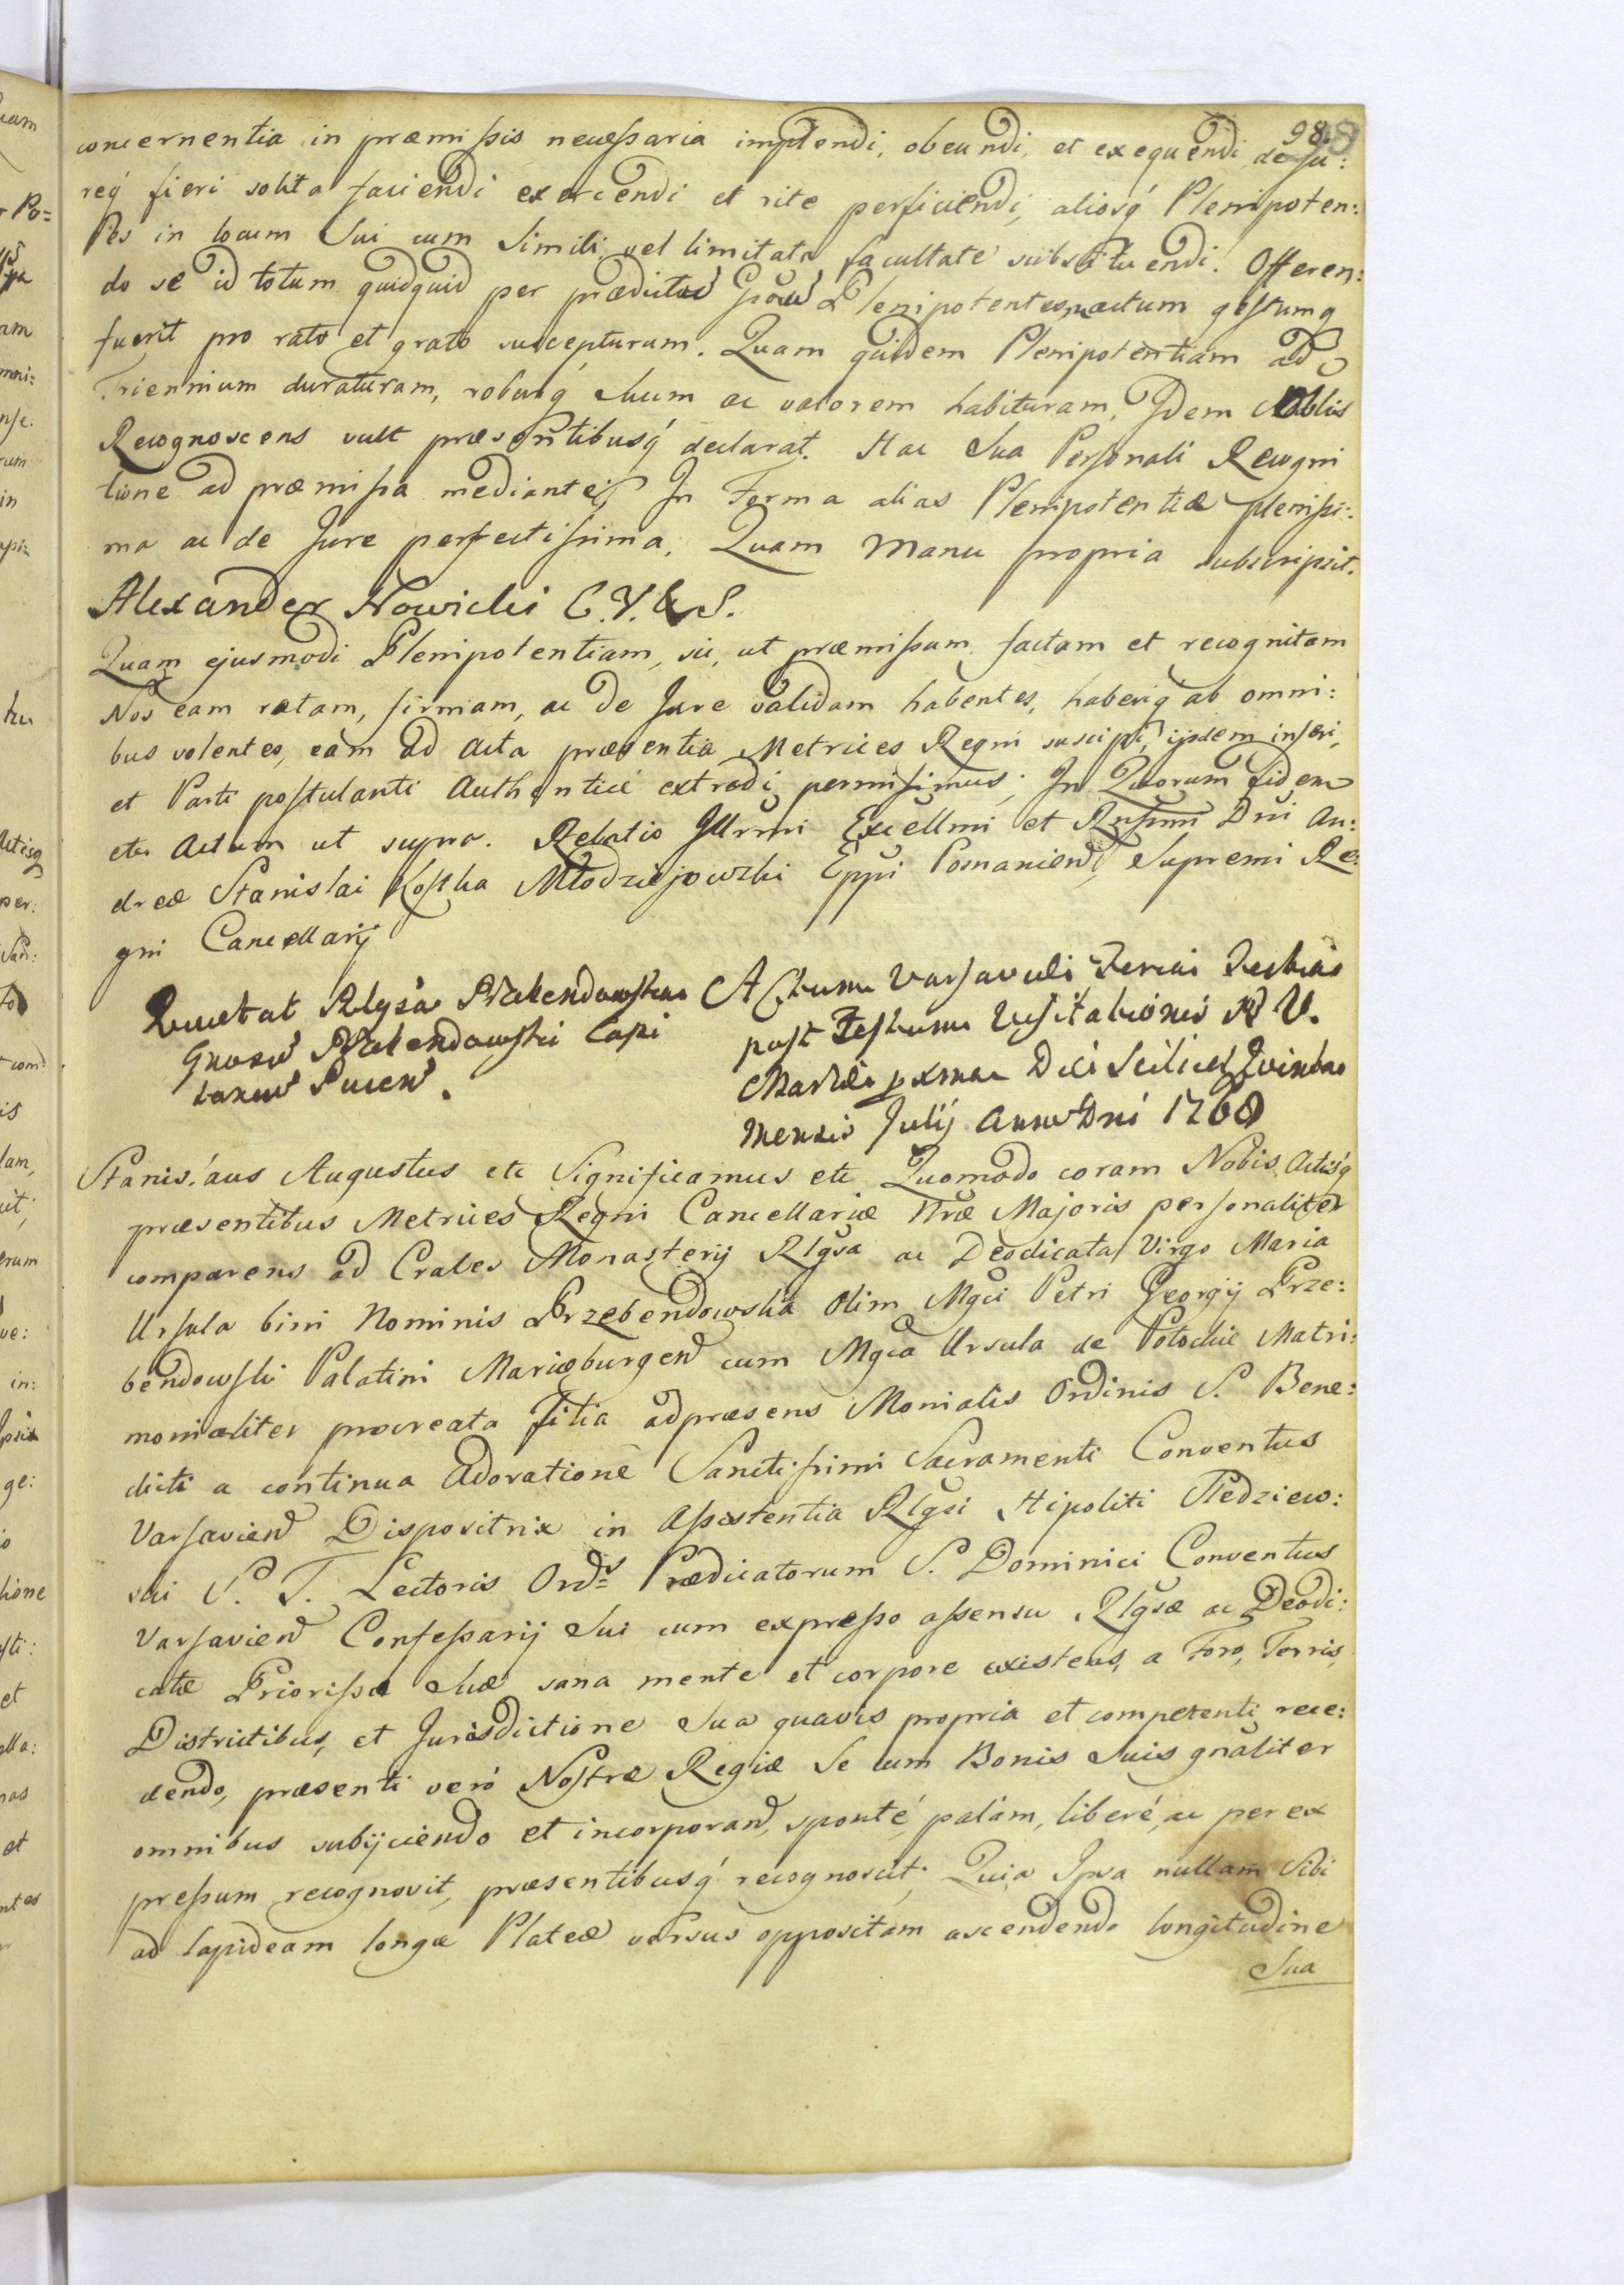 98
concernentia in præmissis necessaria implendi, obeundi, et exequendi, de Ju:
req́ fieri solita faciendi exercendi et rite perficiendi, aliosq́ Plenipoten:
tes in locum Sui cum Simili vel limitata facultate substituendi. Offeren:
do se id totum quidquid per prædictos Plenipotentes actum gestumq
fuerit pro rato et grato suscepturum. Quam quidem Plenipotentiam ad
Triennium duraturam, roburq́ Suum ac valorem habituram, Idem Nobilis
Recognoscens vult præsentibusq́ declarat. Hac Sua Personali Recogni
tione ad præmissa mediante, In Forma alias Plenipotentiæ plenissi:
ma ac de Jure perfectissima, Quam Manu propria subscripsit.
Alexander Nowicki
Quam ejusmodi Plenipotentiam, sic, ut præmissum, factam et recognitam
Nos eam ratam, firmam, ac de Jure validam habentes, haberiq́ ab omni:
bus volentes, eam ad Acta præsentia Metrices Regni suscipi, ijsdem inseri,
et Parti postulanti Authenticè extradi permisimus; In Quorum Fidem
etc Actum ut supra. Relatio Illrmi Excellmi et Rssimi Dni An:
dreæ Stanislai Kostka Młodziejowski Eppi Posnanien, Supremi Re:
gni Cancellarij
Quietat Rlgsa Przebendowska
Gnosum Przebendowski Capi
taneum Pucen.
Actum Varsaviæ Feria Tertia
post Festum Visitationis B V.
Mariæ pxma Die Scilicet Quinta
Mensis Julij Anno Dni 1768
Stanislaus Augustus etc Significamus etc Quomodo coram Nobis Actisq́
præsentibus Metrices Regni Cancellariæ Nræ Majoris personaliter
comparens ad Crates Monasterij Rlgsa ac Deodicata Virgo Maria
Ursula bini Nominis Przebendowska Olim Mgci Petri Georgij Prze:
bendowski Palatini Mariæburgen cum Mgca Ursula de Potockie Matri:
monialiter procreata Filia adpræsens Monialis Ordinis S. Bene:
dicti a continua Adoratione Sanctissimi Sacramenti Conventus
Varsavien Dispositrix in Assistentia Rlgsi Hipoliti
S. T. Lectoris Ords Prædicatorum S. Dominici Conventus
Varsavien Confessarij Sui cum expresso assensu Rlgsæ ac Deodi:
catæ Priorissæ Suæ sana mente et corpore existens, a Foro, Terris,
Districtibus, et Jurisdictione Sua quavis propria et competenti rece:
dendo, præsenti verò Nostræ Regiæ Se cum Bonis Suis gnaliter
omnibus subijciendo et incorporan, sponté, palàm, liberé, ac per ex
pressum recognovit, præsentibusq́ recognoscit; Quia Ipsa nullam Sibi
ad lapideam longæ Plateæ versus oppositam ascendendo longitudine
Sua